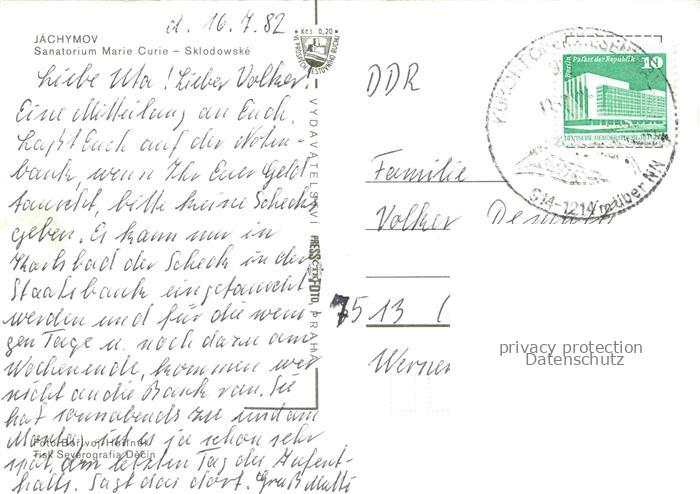 d. 16.7.82
JÁCHYMOV
Sanatorium Marie Curie – Sklodowské
Liebe Uta! Lieber Volker!
Eine Mitteilung an Euch.
Laßt Euch auf der Noten-
bank, wenn Ihr Euer Geld
tauscht, bitte keine Schecks
geben. Es kann nur in
Karlsbad der Scheck in der
Staatsbank eingetauscht
werden und für die weni-
gen Tage u. noch dazu am
Wochenende, kommen wir
nicht an die Bank ran. Sie
hat sonnabends zu und am
Montag ist es ja schon sehr
spät, am letzten Tag des Aufent-
halts. Sagt das dort. Gruß Mutti
Tisk Severografia Děčín
Kčs 0,20
VYDAVATELSTVÍ PRESSFOTO, PRAHA
DDR
Familie
Volker
7513
Werner
Berlin, Palast der Republik 10
DEUTSCHE DEMOKRATISCHE REPUBLIK
914-1214 m über NN
privacy protection
Datenschutz